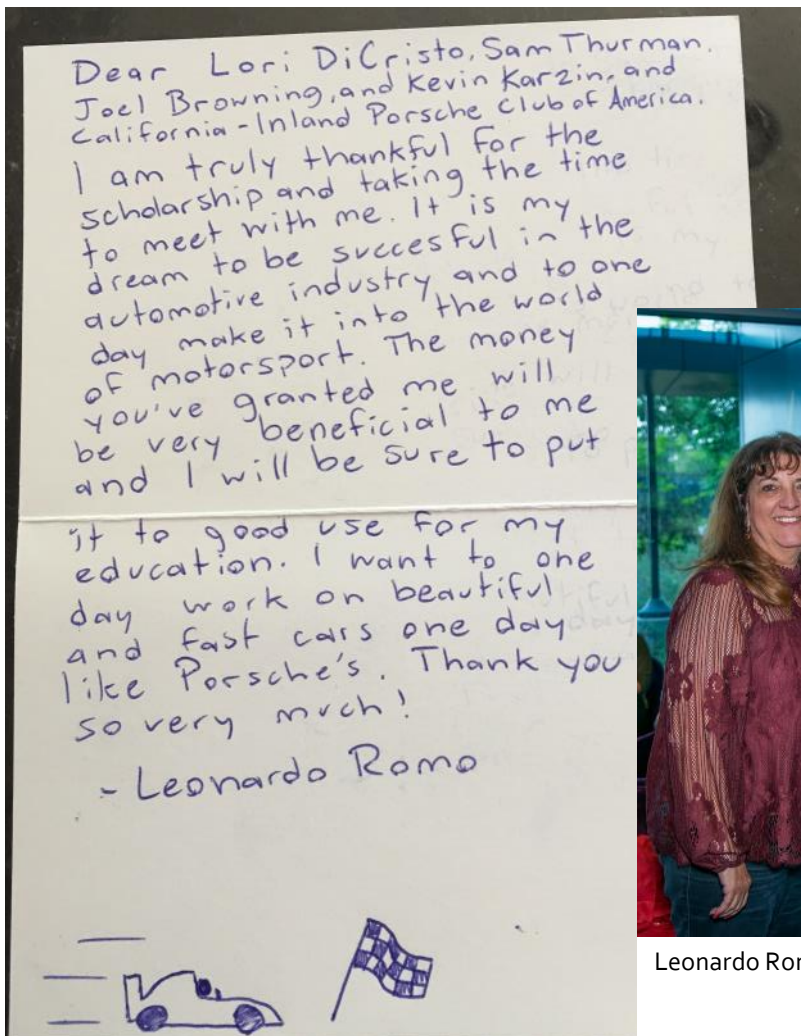 Dear Lori DiCristo, Sam Thurman,
Joel Browning, and Kevin Karzin, and
California-Inland Porsche Club of America.
I am truly thankful for the
scholarship and taking the time
to meet with me. It is my
dream to be succesful in the
automotive industry and to one
day make it into the world
of motorsport. The money
you've granted me will
be very beneficial to me
and I will be sure to put
it to good use for my
education. I want to one
day work on beautiful
and fast cars one day
like Porsche's. Thank you
so very much!
- Leonardo Romo
Leonardo